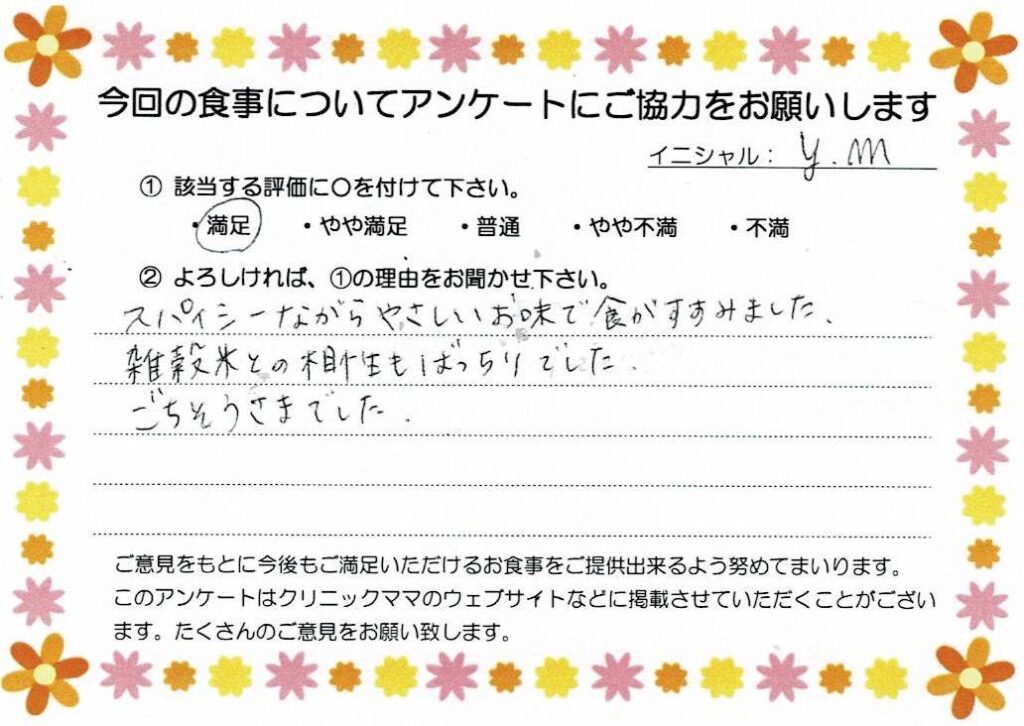 今回の食事についてアンケートにご協力をお願いします
イニシャル： y.m
① 該当する評価に〇を付けて下さい。
・満足 ・やや満足 ・普通 ・やや不満 ・不満
② よろしければ、①の理由をお聞かせ下さい。
スパイシーながらやさしいお味で食がすすみました．
雑穀米との相性もばっちりでした．
ごちそうさまでした．
ご意見をもとに今後もご満足いただけるお食事をご提供出来るよう努めてまいります。
このアンケートはクリニックママのウェブサイトなどに掲載させていただくことがござい
ます。たくさんのご意見をお願い致します。